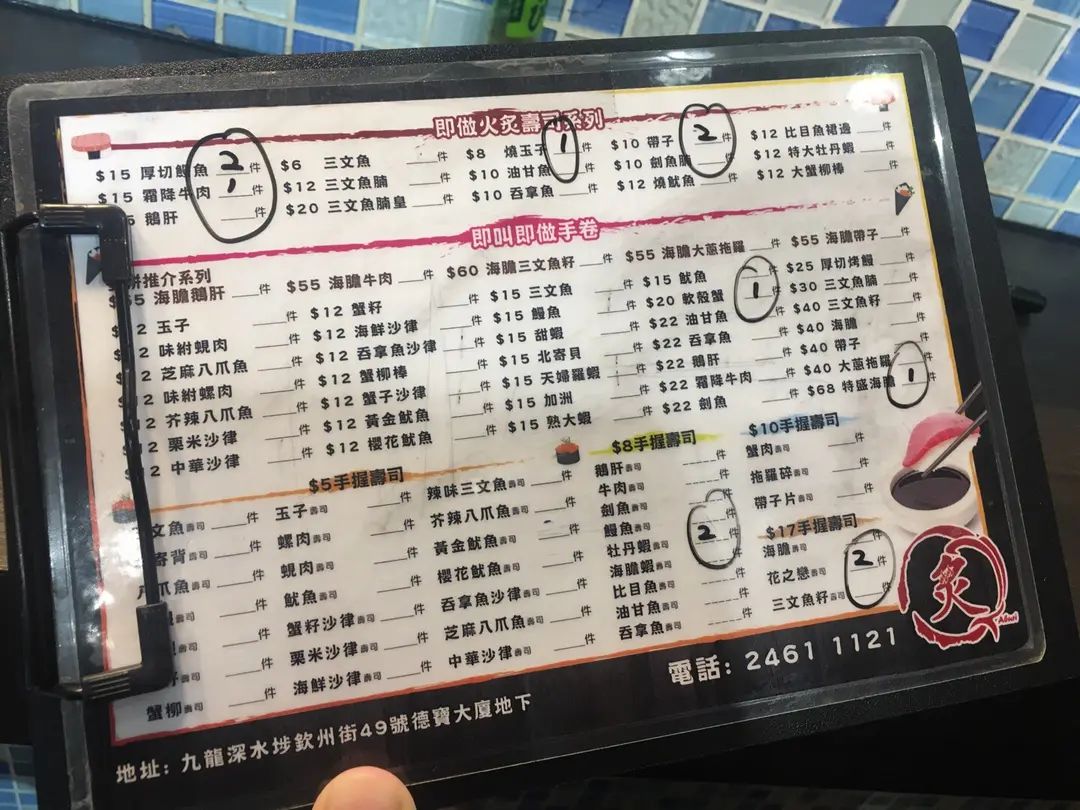 即做火炙壽司系列
$15 厚切鰻魚 2 件 $6 三文魚 件 $8 燒玉子 1 件 $10 帶子 2 件 $12 比目魚裙邊 件
$15 霜降牛肉 1 件 $12 三文魚腩 件 $10 油甘魚 件 $10 劍魚腩 件 $12 特大牡丹蝦 件
鵝肝 件 $20 三文魚腩皇 件 $10 吞拿魚 件 $12 燒魷魚 件 $12 大蟹柳棒 件
即叫即做手卷
推介系列
海膽鵝肝 件 $55 海膽牛肉 件 $60 海膽三文魚籽 件 $55 海膽大蔥拖羅 件 $55 海膽帶子 件
玉子 件
味紨蜆肉 件
芝麻八爪魚 件
味紨螺肉 件
芥辣八爪魚 件
栗米沙律 件
中華沙律 件
$12 蟹籽 件
$12 海鮮沙律 件
$12 吞拿魚沙律 件
$12 蟹柳棒 件
$12 蟹子沙律 件
$12 黃金魷魚 件
$12 櫻花魷魚 件
$15 三文魚 件
$15 鰻魚 件
$15 甜蝦 件
$15 北寄貝 件
$15 天婦羅蝦 件
$15 加洲 件
$15 熟大蝦 件
$15 魷魚 件
$20 軟殼蟹 1 件
$22 油甘魚 件
$22 吞拿魚 件
$22 鵝肝 件
$22 霜降牛肉 件
$22 劍魚 件
$25 厚切烤鰻 件
$30 三文魚腩 件
$40 三文魚籽 件
$40 海膽 件
$40 帶子 件
$40 大蔥拖羅 件
$68 特盛海膽 1 件
$5手握壽司
文魚壽司 件
寄背壽司 件
爪魚壽司 件
壽司 件
壽司 件
壽司 件
蟹柳壽司 件
玉子壽司 件
螺肉壽司 件
蜆肉壽司 件
魷魚壽司 件
蟹籽沙律壽司 件
栗米沙律壽司 件
海鮮沙律壽司 件
辣味三文魚壽司 件
芥辣八爪魚壽司 件
黃金魷魚壽司 件
櫻花魷魚壽司 件
吞拿魚沙律壽司 件
芝麻八爪魚壽司 件
中華沙律壽司 件
$8手握壽司
鵝肝壽司 件
牛肉壽司 件
劍魚壽司 件
鰻魚壽司 2 件
牡丹蝦壽司 件
海膽蝦壽司 件
比目魚壽司 件
油甘魚壽司 件
吞拿魚壽司 件
$10手握壽司
蟹肉壽司 件
拖羅碎壽司 件
帶子片壽司 件
$17手握壽司
海膽壽司 2 件
花之戀壽司 件
三文魚籽壽司 件
炙
Aburi
電話: 2461 1121
地址: 九龍深水埗欽州街49號德寶大廈地下